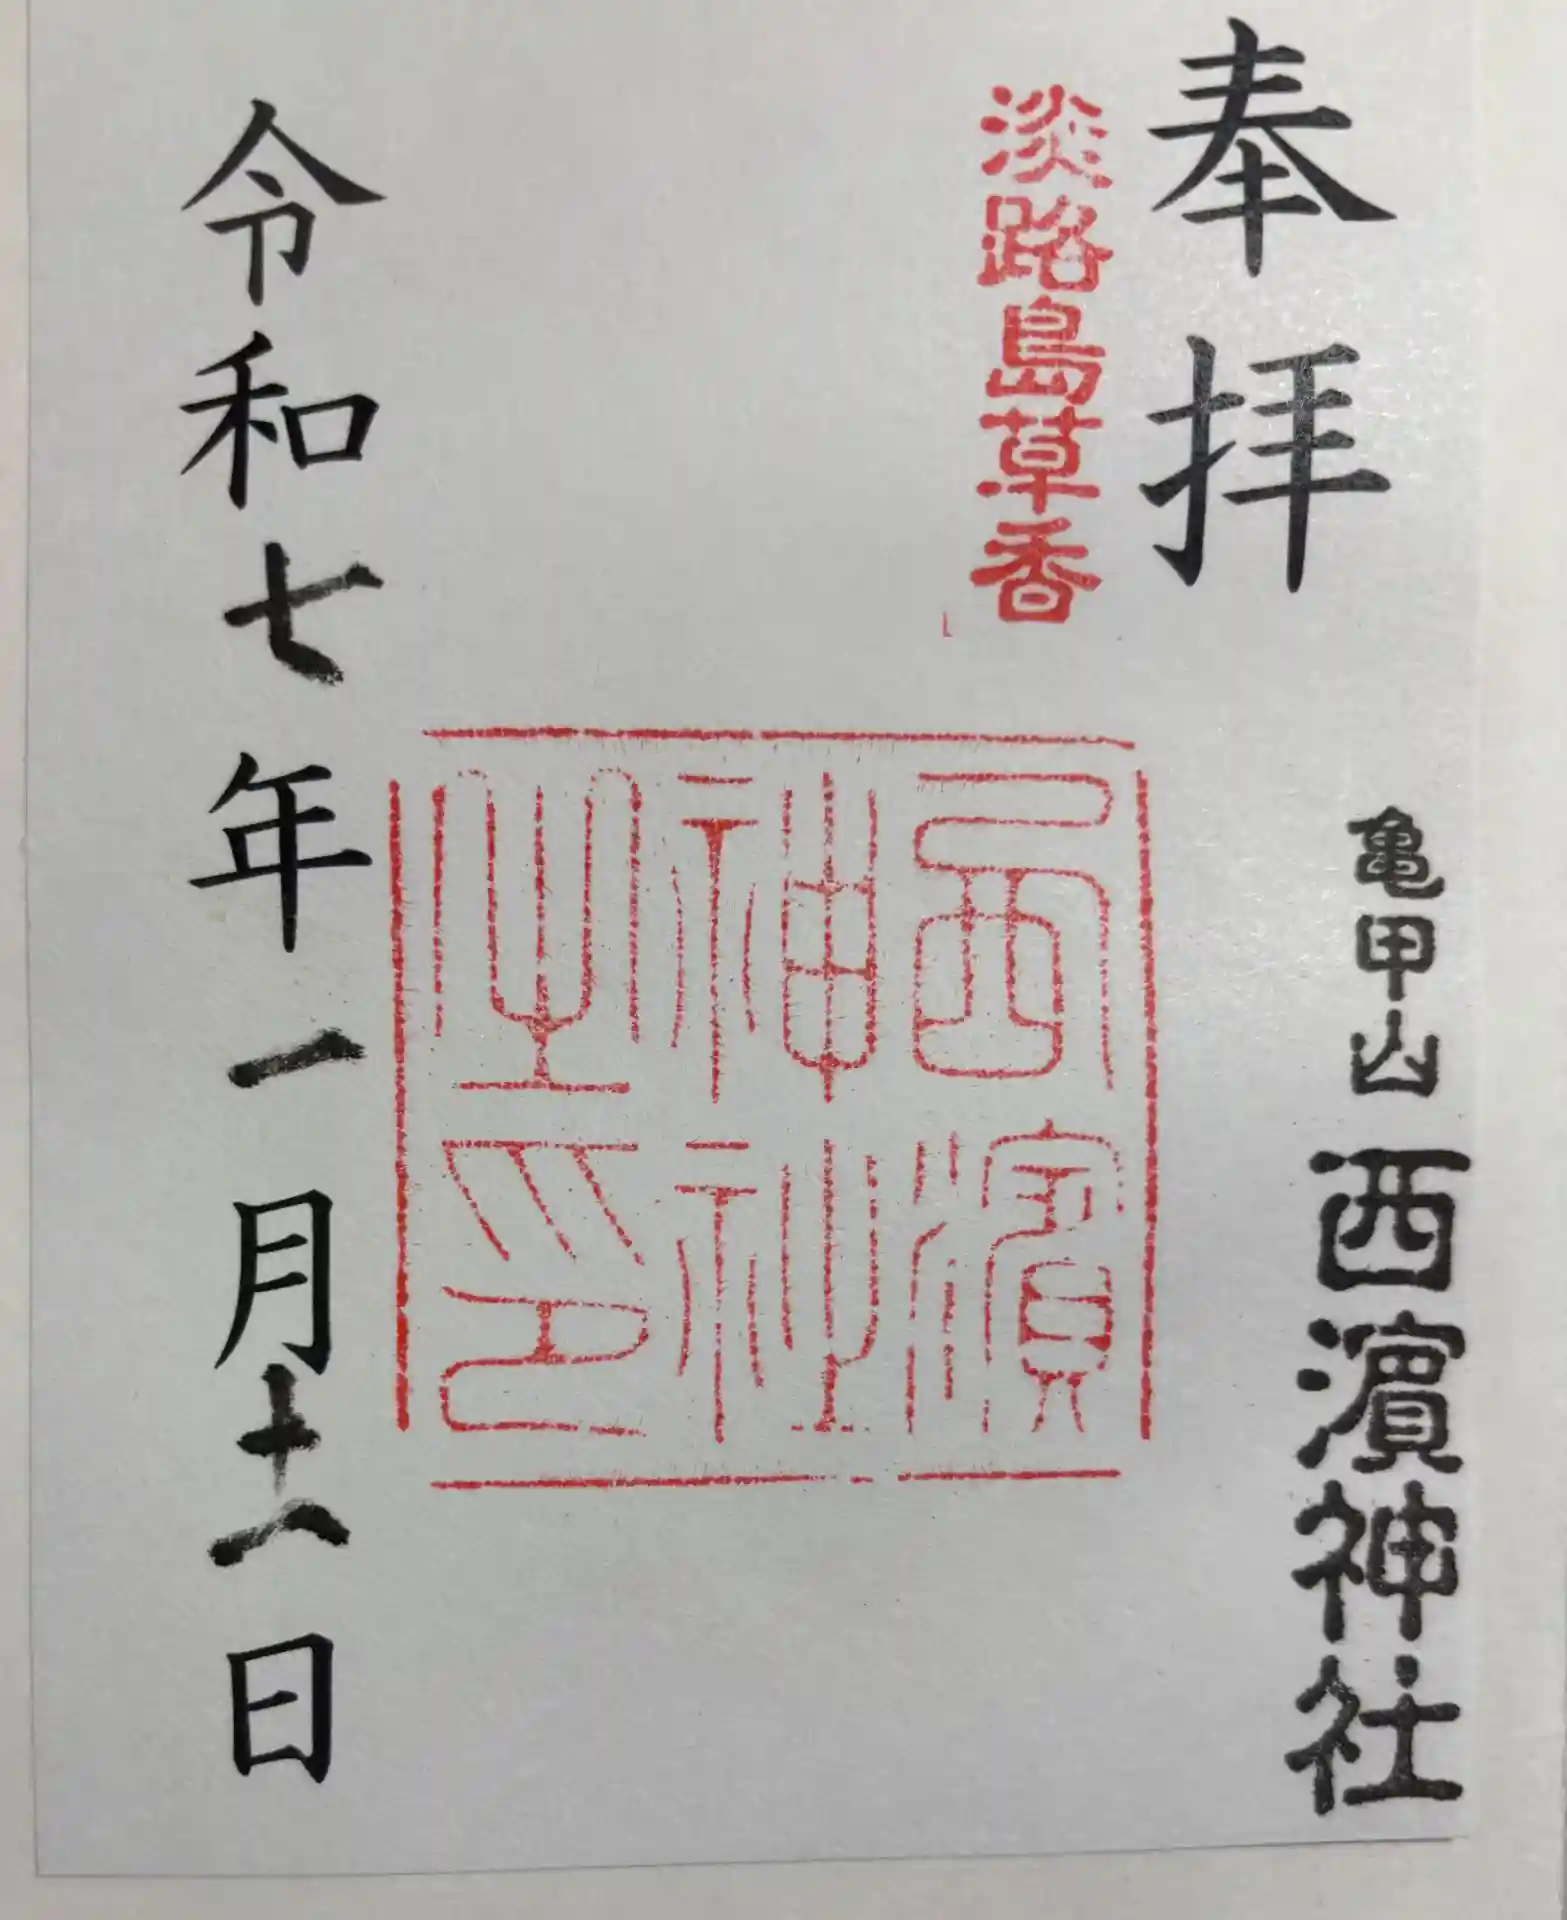 奉拝
亀甲山西濱神社
淡路島草香
西濱
神社
之印
令和七年一月十一日